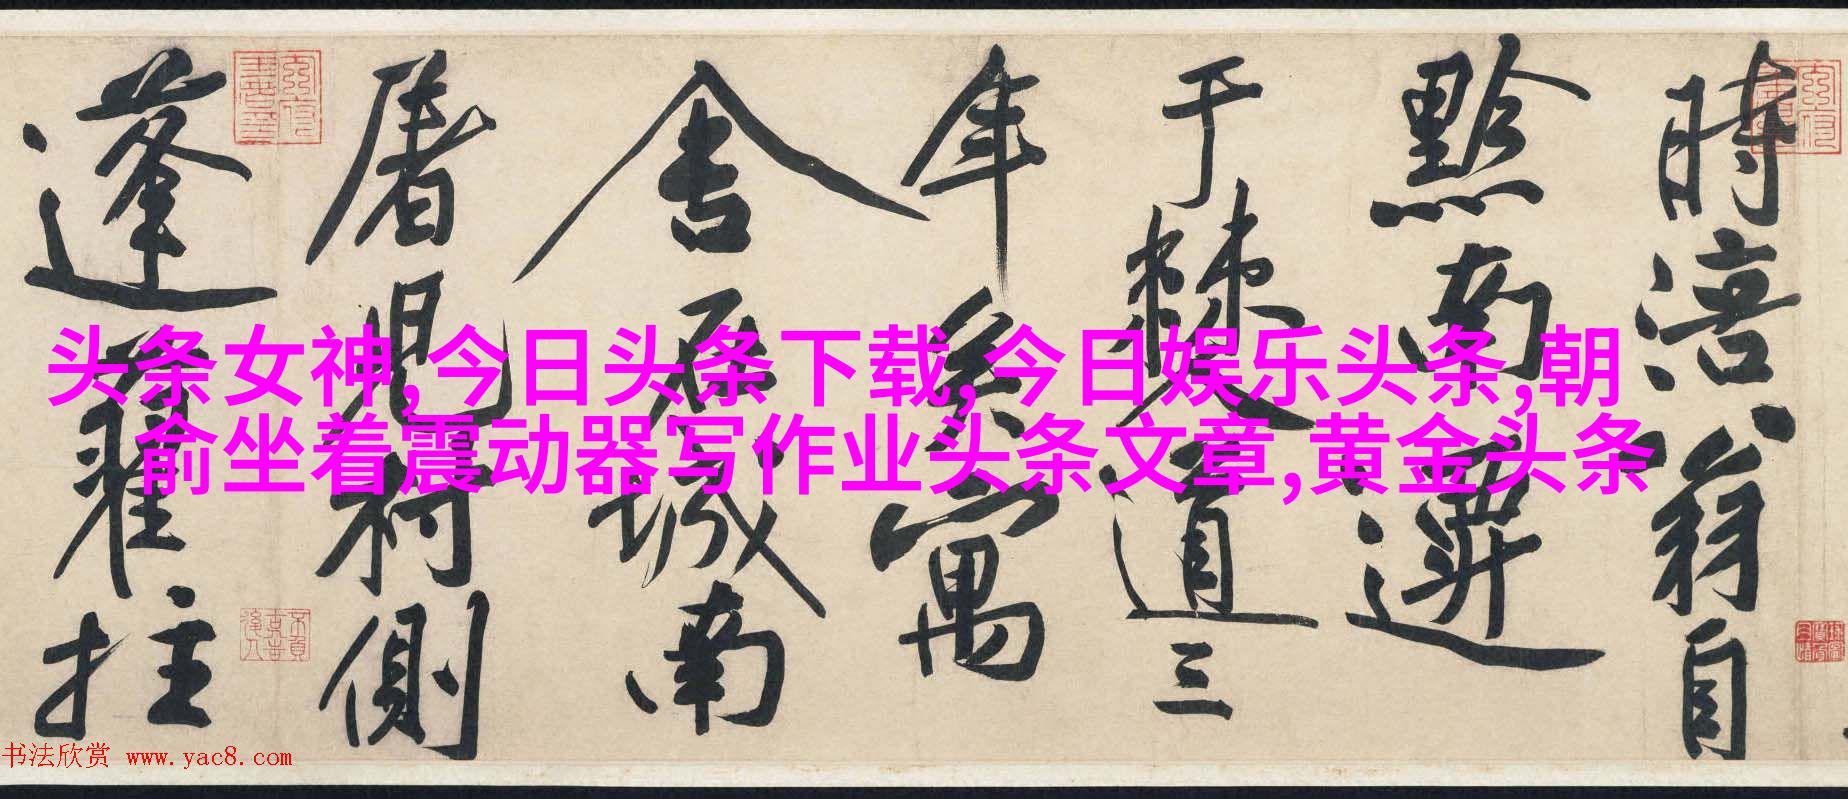 時涪翁自
黔南遷
于棘道三
年矣寓
舍居城南
屠児村側
蓬藋拄
头条女神,今日头条下载,今日娱乐头条,朝
俞坐着震动器写作业头条文章,黄金头条
书法欣赏 www.yac8.com